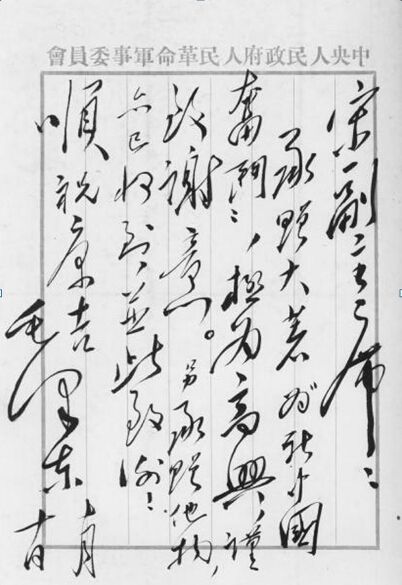 中央人民政府人民革命軍事委員會
宋副主席：
承贈大著为新中國
奮鬥，極为高興，謹
致謝意。另承贈他物，
亦已收到，並此致謝！
順祝康吉
毛澤東